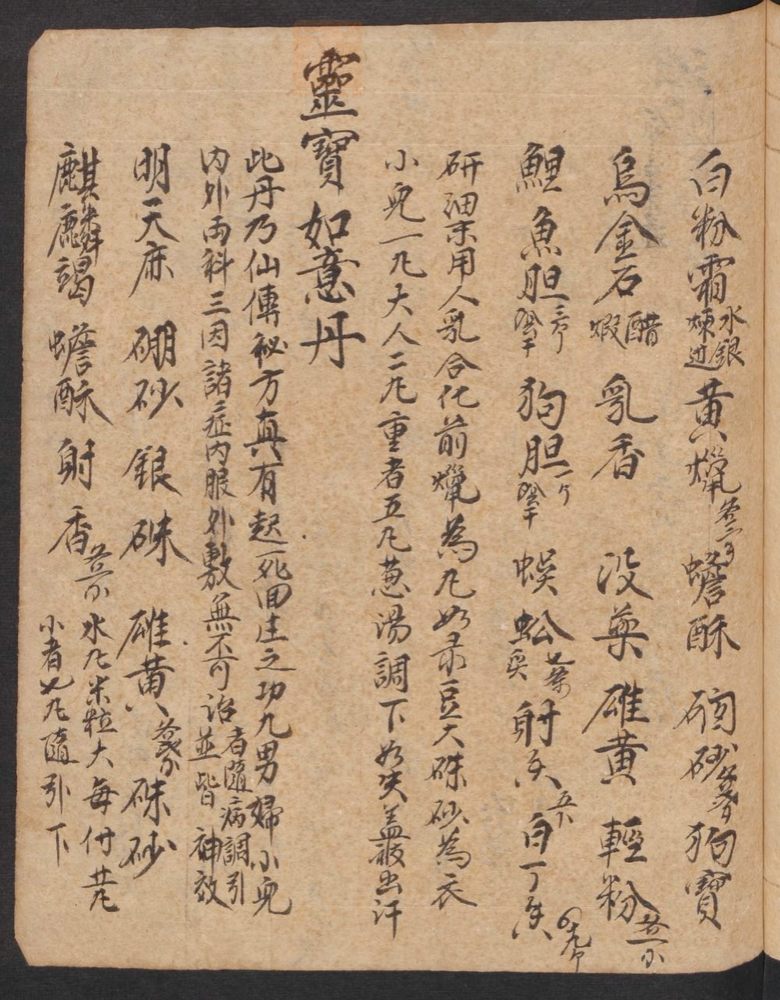 白粉霜水銀煉过黄爉蟾酥硇砂狗寶
烏金石醋煅乳香没藥雄黄輕粉
鯉魚胆三个陰干狗胆一个陰干蜈蚣射香白丁香
研細末用人乳合化前爉為凡如彔豆大硃砂為衣
小兒一凡大人二凡重者五凡葱湯調下如次盖被出汗
靈寶如意丹
此丹乃仙傳秘方真有起死回生之功凡男婦小兒
内外两科三因諸症内服外敷無不可治者隨病調引並皆神效
明天麻硼砂銀硃雄黄硃砂
麒麟竭蟾酥射香水凡米粒大每付
小者七凡隨引下